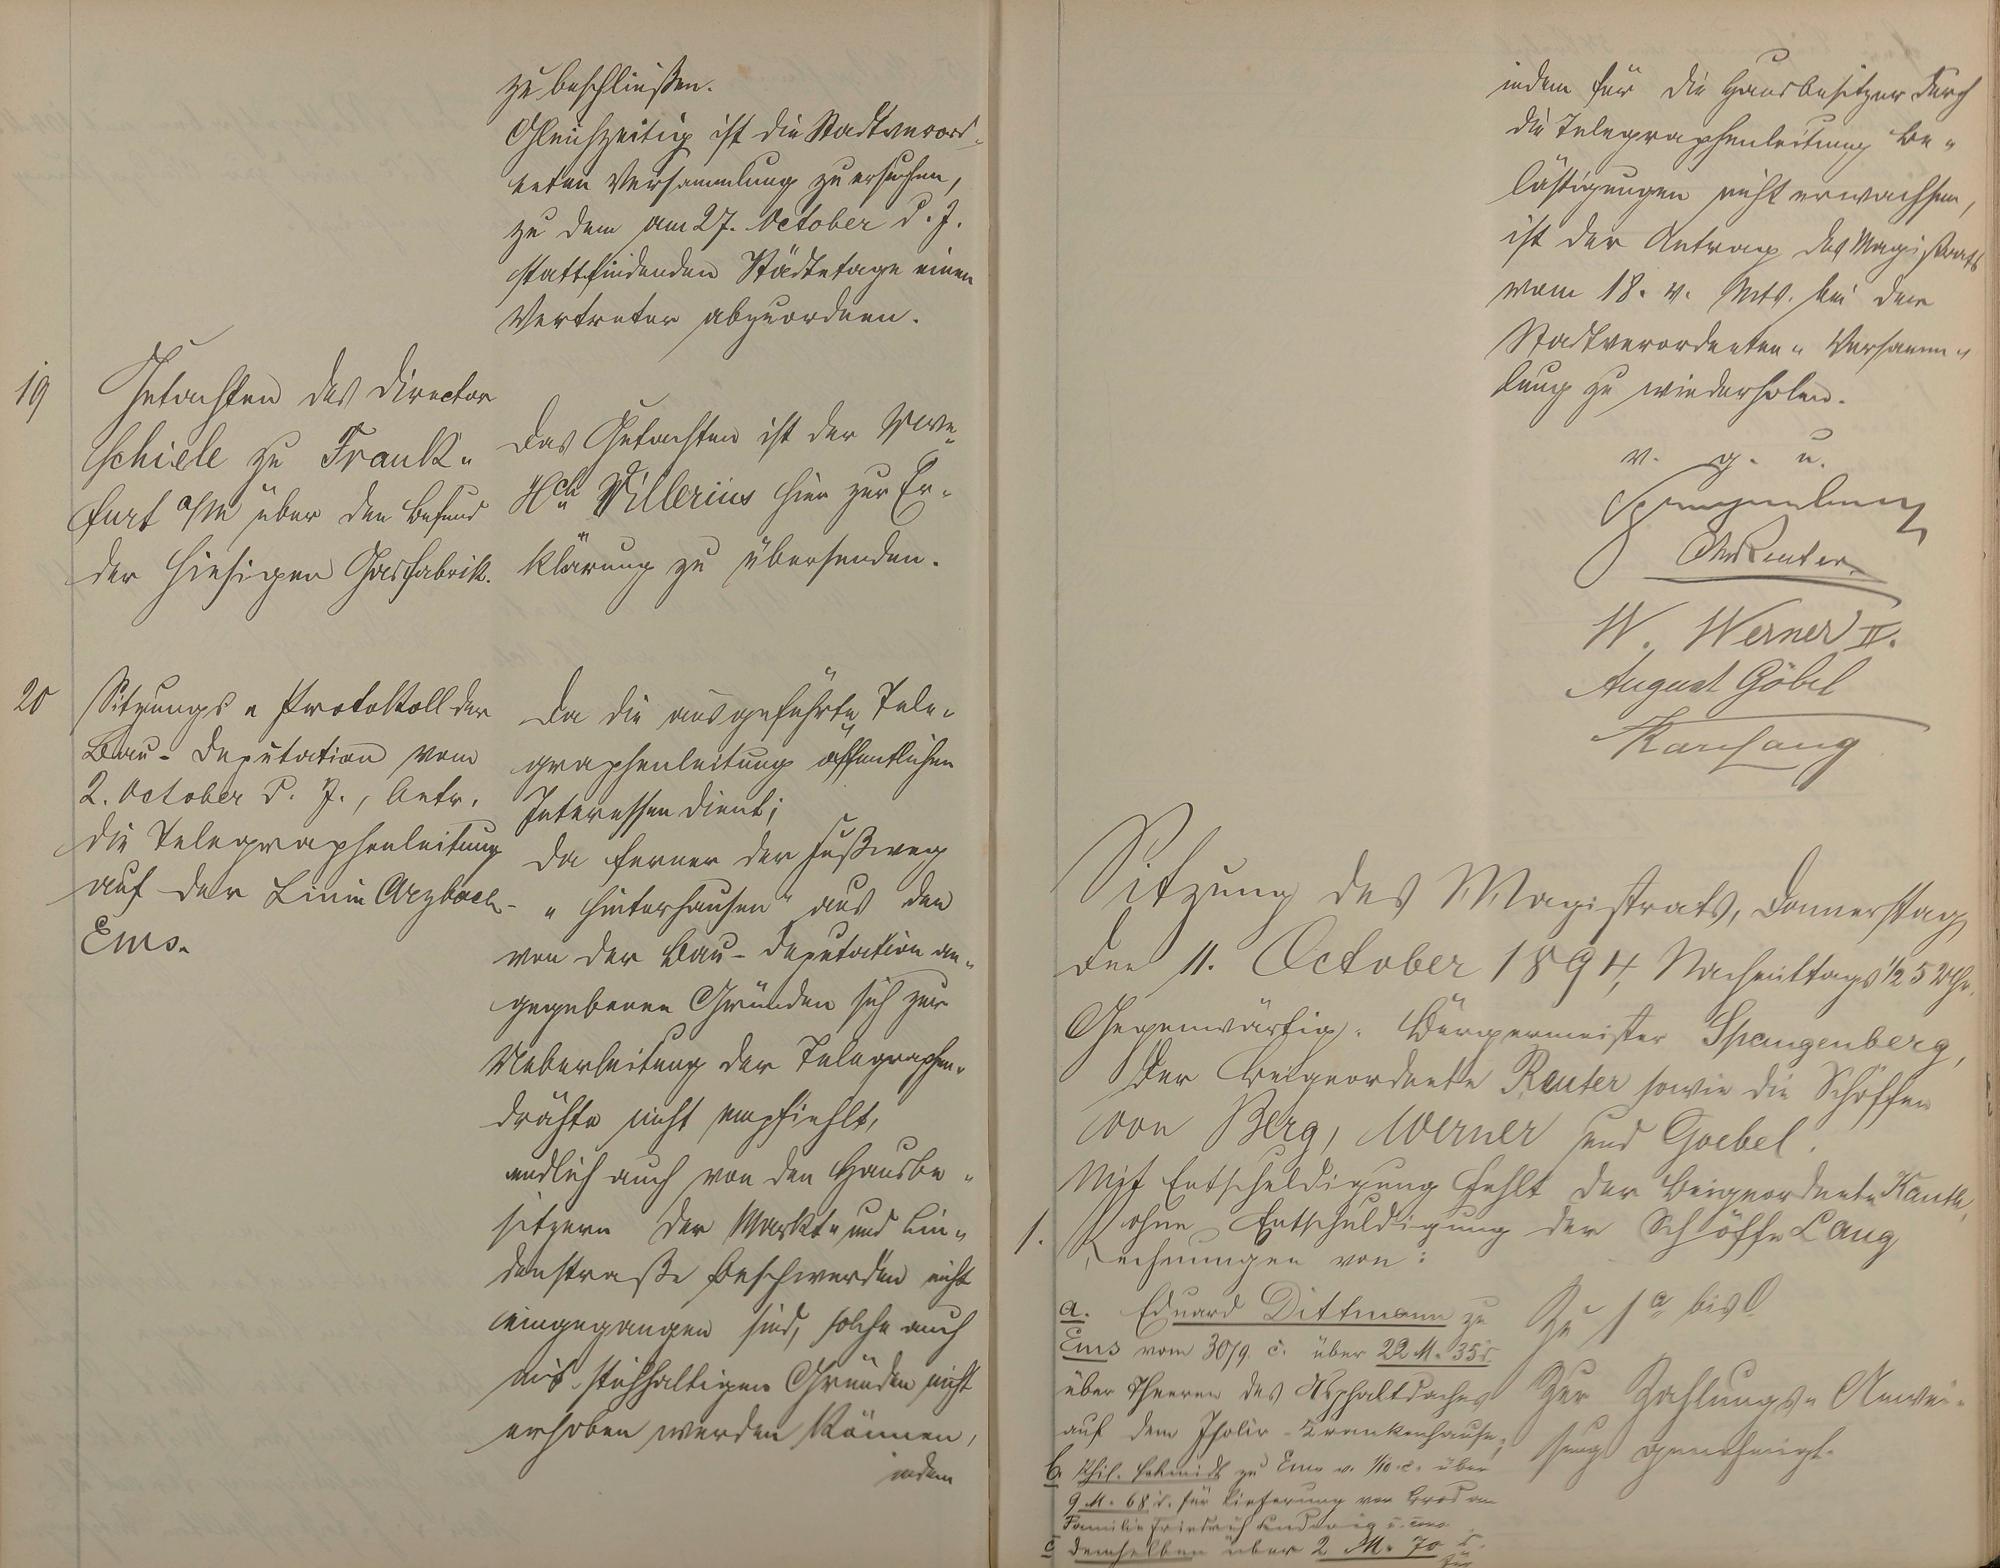 zu beschließen.
Gleichzeitig ist die Stadtverord-
neten Versammlung zu ersuchen,
zu dem am 27. October d. J.
stattfindenden Städtetage einen
Vertreter abzuordnen.
19
Gutachten des Director
Schiele zu Frank-
furt a/M über den Befund
der hiesigen Gasfabrik.
Das Gutachten ist der Wwe
Hch Villerius hier zur Er-
klärung zu übersenden.
20
Sitzungs-Protokoll der
Bau-Deputation vom
2. October d. J., betr.
die Telegraphenleitung
auf der Linie Arzbach-
Ems.
Da die ausgeführte Tele-
graphenleitung öffentlichen
Interessen dient;
da ferner der Fußweg
"Hinterhausen" aus den
von der Bau-Deputation an-
gegebenen Gründen sich zur
Ueberleitung der Telegraphen-
drähte nicht empfiehlt,
endlich auch von den Hausbe-
sitzern der Markt- und Lin-
denstraße Beschwerden nicht
eingegangen sind, solche auch
mit stichhaltigen Gründen nicht
erhoben werden können,
indem
indem für die Hausbesitzer durch
die Telegraphenleitung Be-
lästigungen nicht erwachsen,
ist der Antrag des Magistrats
vom 18. v. Mts. bei der
Stadtverordneten-Versamm-
lung zu wiederholen.
v. g. u.
Spangenberg
Reuter.
W. Werner II.
August Göbel
Karl Lang
Sitzung des Magistrats, Donnerstag,
den 11. October 1894, Nachmittags 1/2 5 Uhr.
Gegenwärtig: Bürgermeister Spangenberg,
der Beigeordnete Reuter sowie die Schöffen
von Berg, Werner und Goebel.
Mit Entschuldigung fehlt der Beigeordnete Kauth,
ohne Entschuldigung der Schöffe Lang
1.
Rechnungen von:
a. Eduard Dittmann zu
Ems vom 30/9 c. über 22 M. 35 d.
über Theeren des Asphaltdaches
auf dem Isolir-Krankenhause;
b. Phil. Schmidt zu Ems v. 1/10. c. über
9 M. 68 d. für Lieferung von Brod an
Familie Friedrich Ludwig
c. demselben über 2 M. 70 d.
für
Zu 1 a bis l
Zur Zahlungs-Anwei-
sung genehmigt.